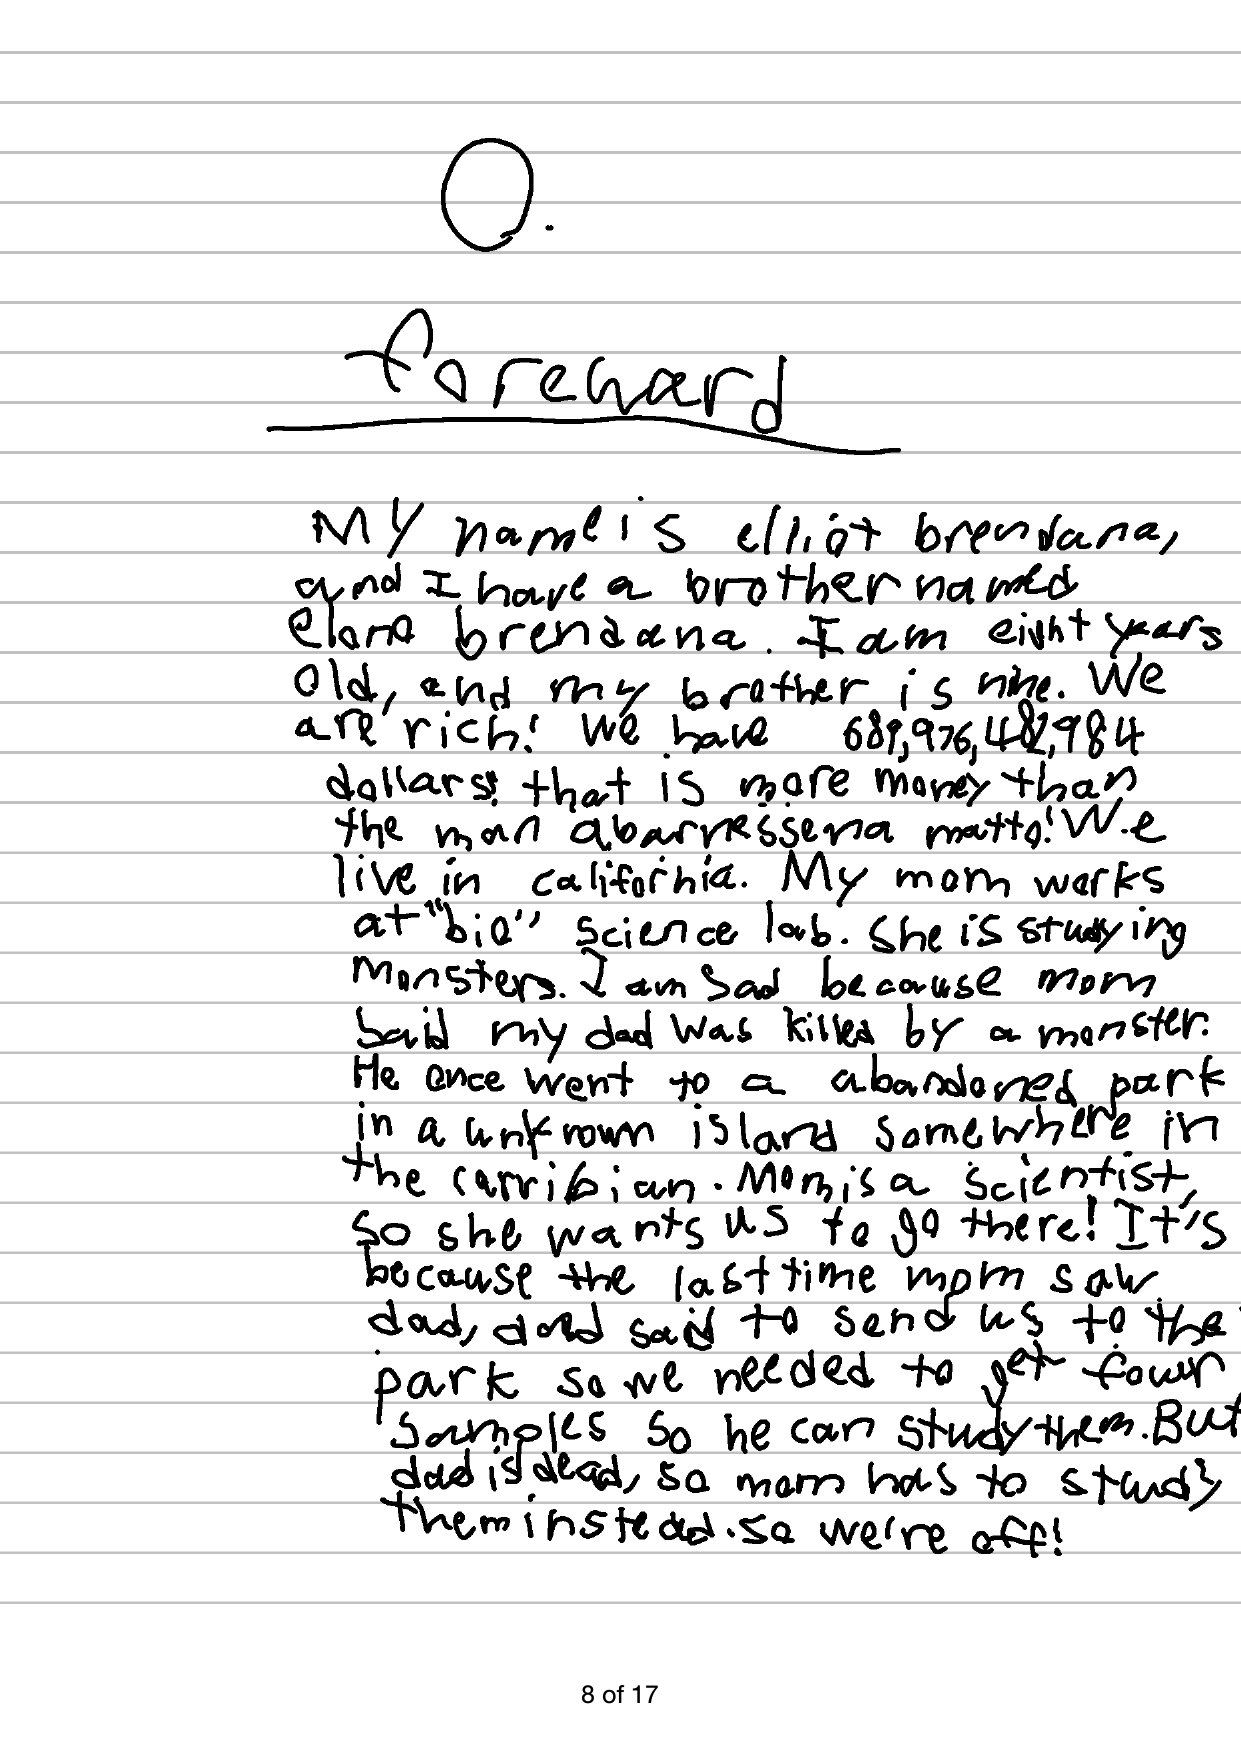 0.
foreward
My name is elliot brendana,
and I have a brother named
elano brendana. I am eight years
old, and my brother is nine. We
are rich! We have 689,976,482,984
dollars! that is more money than
the man abarnessena matto! We
live in california. My mom works
at "bio" science lab. She is studying
Monsters. I am sad because mom
said my dad was killed by a monster.
He once went to a abandoned park
in a unknown island somewhere in
the carribian. Mom is a scientist,
so she wants us to go there! It's
because the last time mom saw
dad, dad said to send us to the
park so we needed to get four
samples so he can study them. But
dad is dead, so mom has to study
them instead. so we're off!
8 of 17